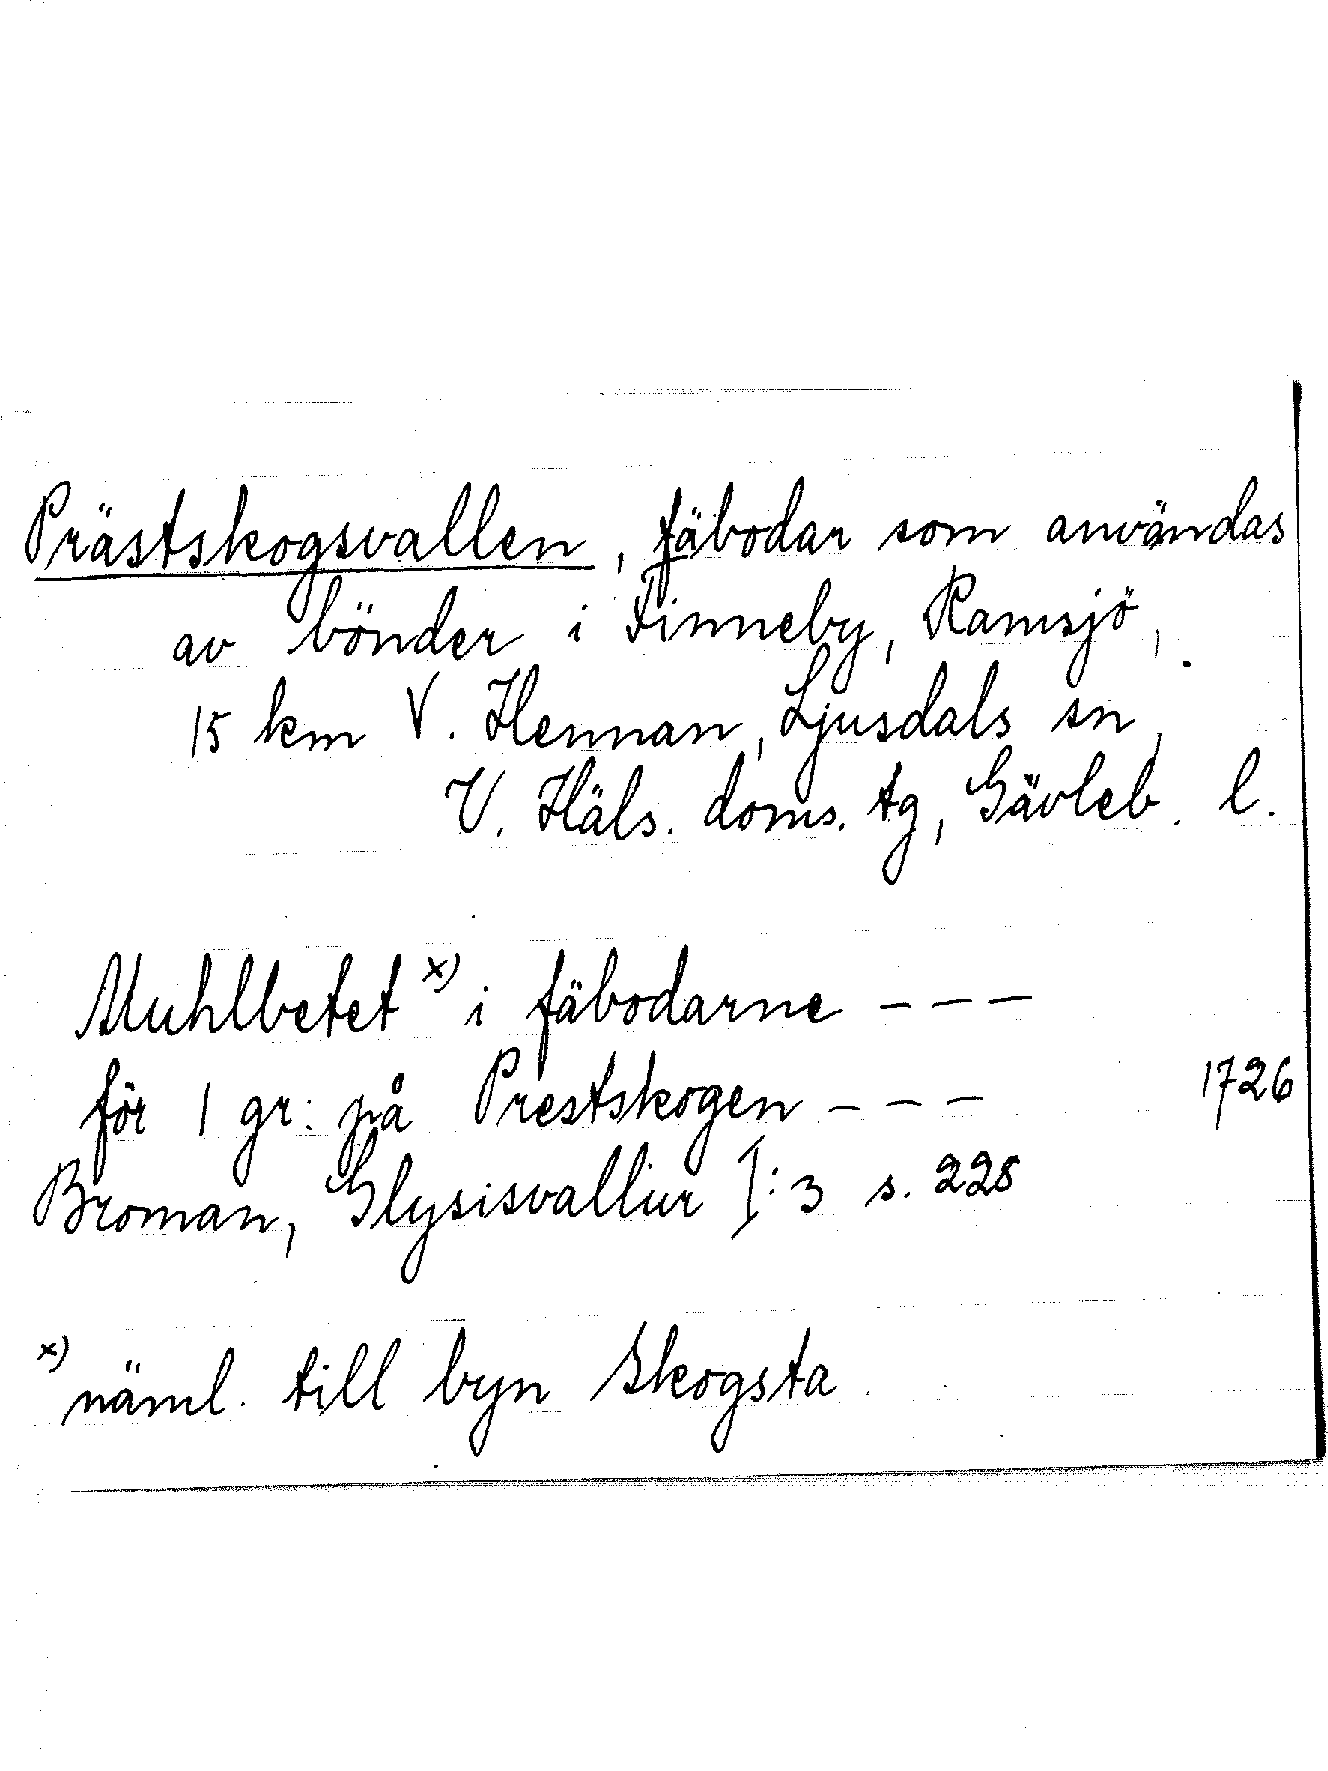 Prästskogsvallen, fäbodar som användas
av bönder i Finneby, Ramsjö,
15 km V. Hennan, Ljusdals sn,
V. Häls. doms. tg, Gävleb. l.
Muhlbetet x) i fäbodarne - - -
för 1 gr: på Prestskogen - - - 1726
Broman, Glysisvallur I:3 s. 228
x) näml. till byn Skogsta